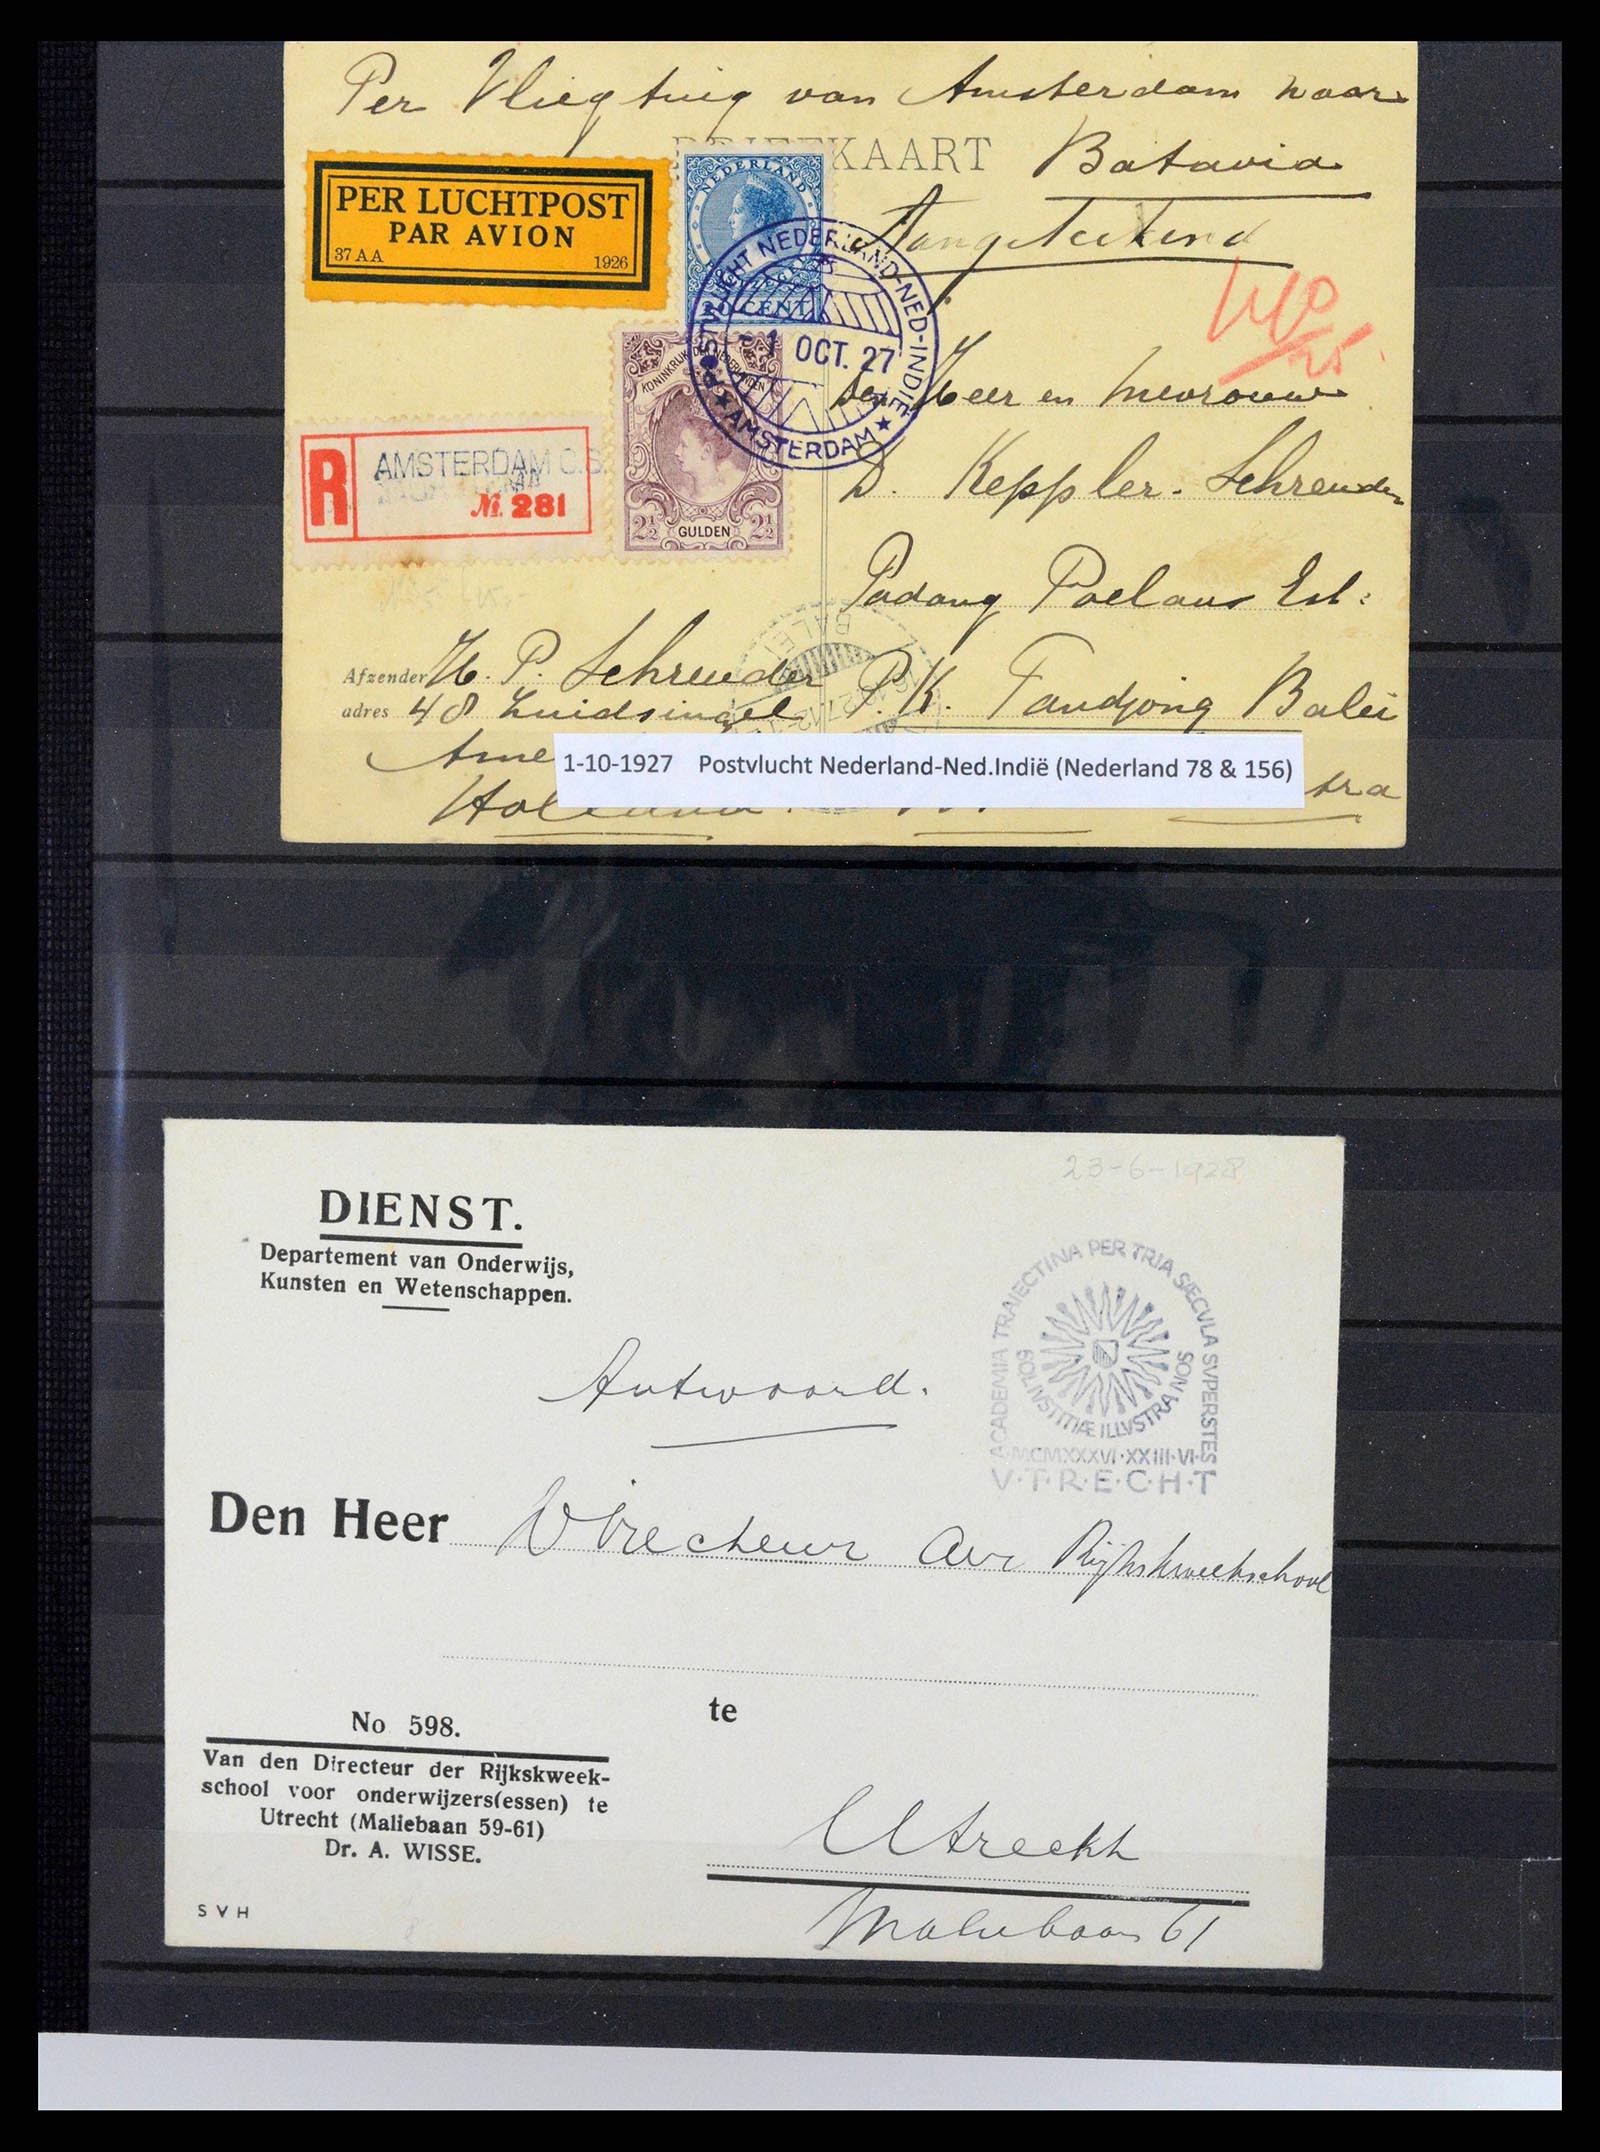 Per Vliegtuig van Amsterdam naar
BRIEFKAART Batavia
Aangeteekend
PER LUCHTPOST
PAR AVION
37 A A 1926
NEDERLAND
CENT
POSTVLUCHT NEDERLAND-NED-INDIË
-1 OCT. 27
★ AMSTERDAM ★
KONINKRIJK DER NEDERLANDEN
2½ GULDEN 2½
R AMSTERDAM C.S.
№. 281
den Heer en Mevrouw
D. Keppler-Schreuder
Padang Poelau Est:
P.K. Tandjong Balei
tra
BALEI
Afzender H. P. Schreuder
adres 48 Zuidsingel
Ame
Holland.
1-10-1927 Postvlucht Nederland-Ned.Indië (Nederland 78 & 156)
23-6-1928
DIENST.
Departement van Onderwijs,
Kunsten en Wetenschappen.
ACADEMIA TRAIECTINA PER TRIA SÆCVLA SVPERSTES
SOL IVSTITIÆ ILLVSTRA NOS
·MCMXXXVI·XXIII·VI·
V·T·R·E·C·H·T
Antwoord.
Den Heer Directeur der Rijkskweekschool
te
No 598.
Van den Directeur der Rijkskweek-
school voor onderwijzers(essen) te
Utrecht (Maliebaan 59-61)
Dr. A. WISSE.
Utrecht
Maliebaan 61
S V H